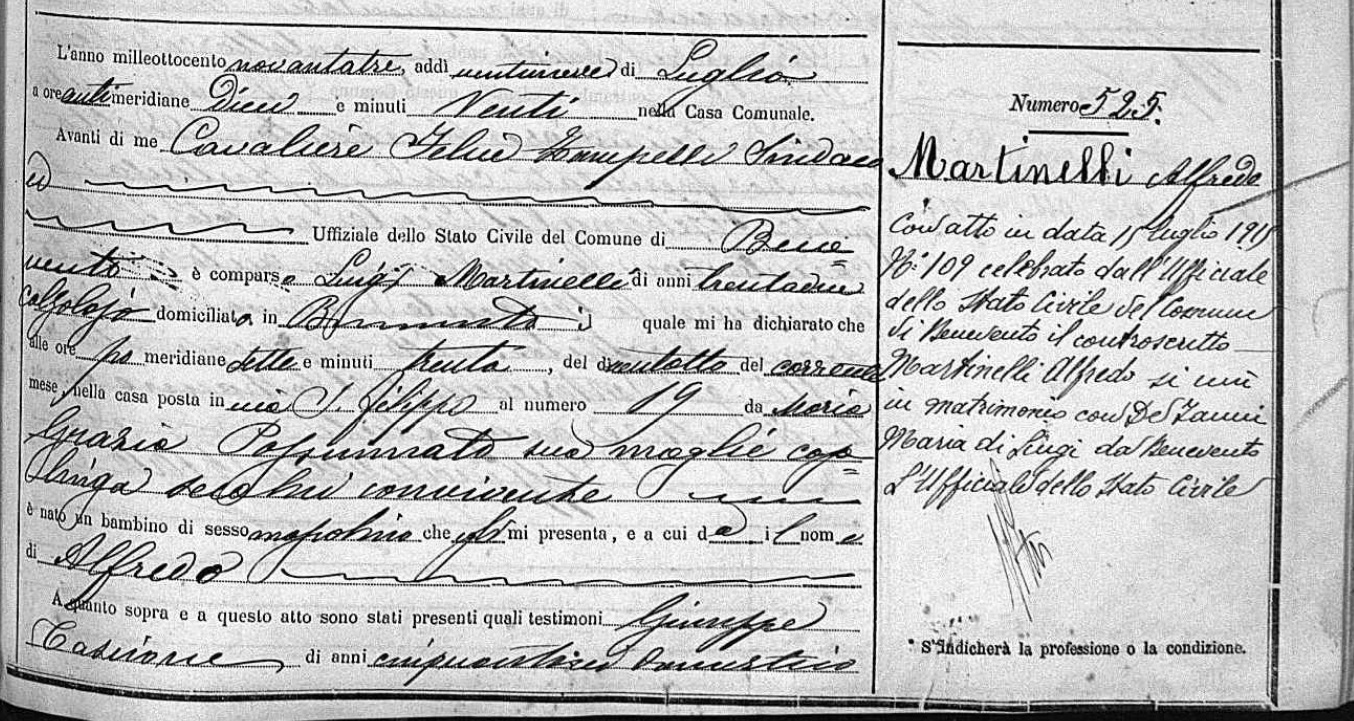 L'anno milleottocento novantatre, addì ventinove di Luglio
a ore anti meridiane Dieci e minuti Venti nella Casa Comunale.
Avanti di me Cavaliere Felice Zampelli Sindaco
ed
Uffiziale dello Stato Civile del Comune di Bene=
vento è comparso Luigi Martinelli di anni trentadue
calzolajo domiciliato in Benevento il quale mi ha dichiarato che
alle ore po meridiane sette e minuti trenta, del dì ventotto del corrente
mese, nella casa posta in via S. Filippo al numero 19 da Maria
Grazia sua moglie ca=
linga seco lui convivente
è nato un bambino di sesso maschio che mi presenta, e a cui dà il nome
di Alfredo
A quanto sopra e a questo atto sono stati presenti quali testimoni Giuseppe
di anni domestico
Numero 525.
Martinelli Alfredo
Con atto in data 15 luglio 1915
N.º 109 celebrato dall'Ufficiale
dello Stato Civile del Comune
di Benevento il controscritto
Martinelli Alfredo si unì
in matrimonio con De Ianni
Maria di Luigi da Benevento
L'Ufficiale dello Stato Civile
* S'indicherà la professione o la condizione.